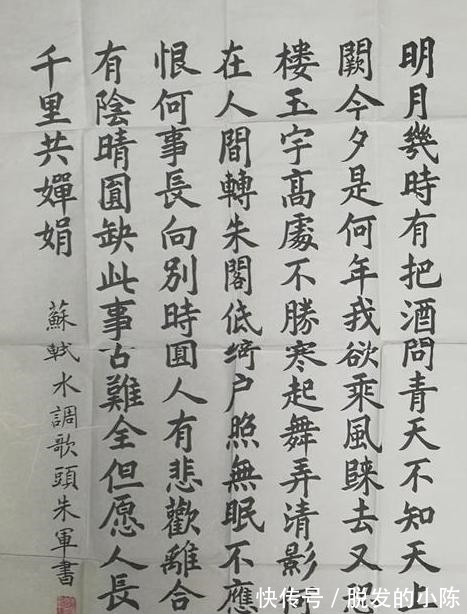 明月幾時有把酒問青天不知天上
闕今夕是何年我欲乘風歸去又恐
樓玉宇高處不勝寒起舞弄清影
在人間轉朱閣低綺户照無眠不應
恨何事長向别時圓人有悲歡離合
有陰晴圓缺此事古難全但愿人長
千里共嬋娟
蘇軾水調歌頭朱軍書
快传号 / 脱发的小陈